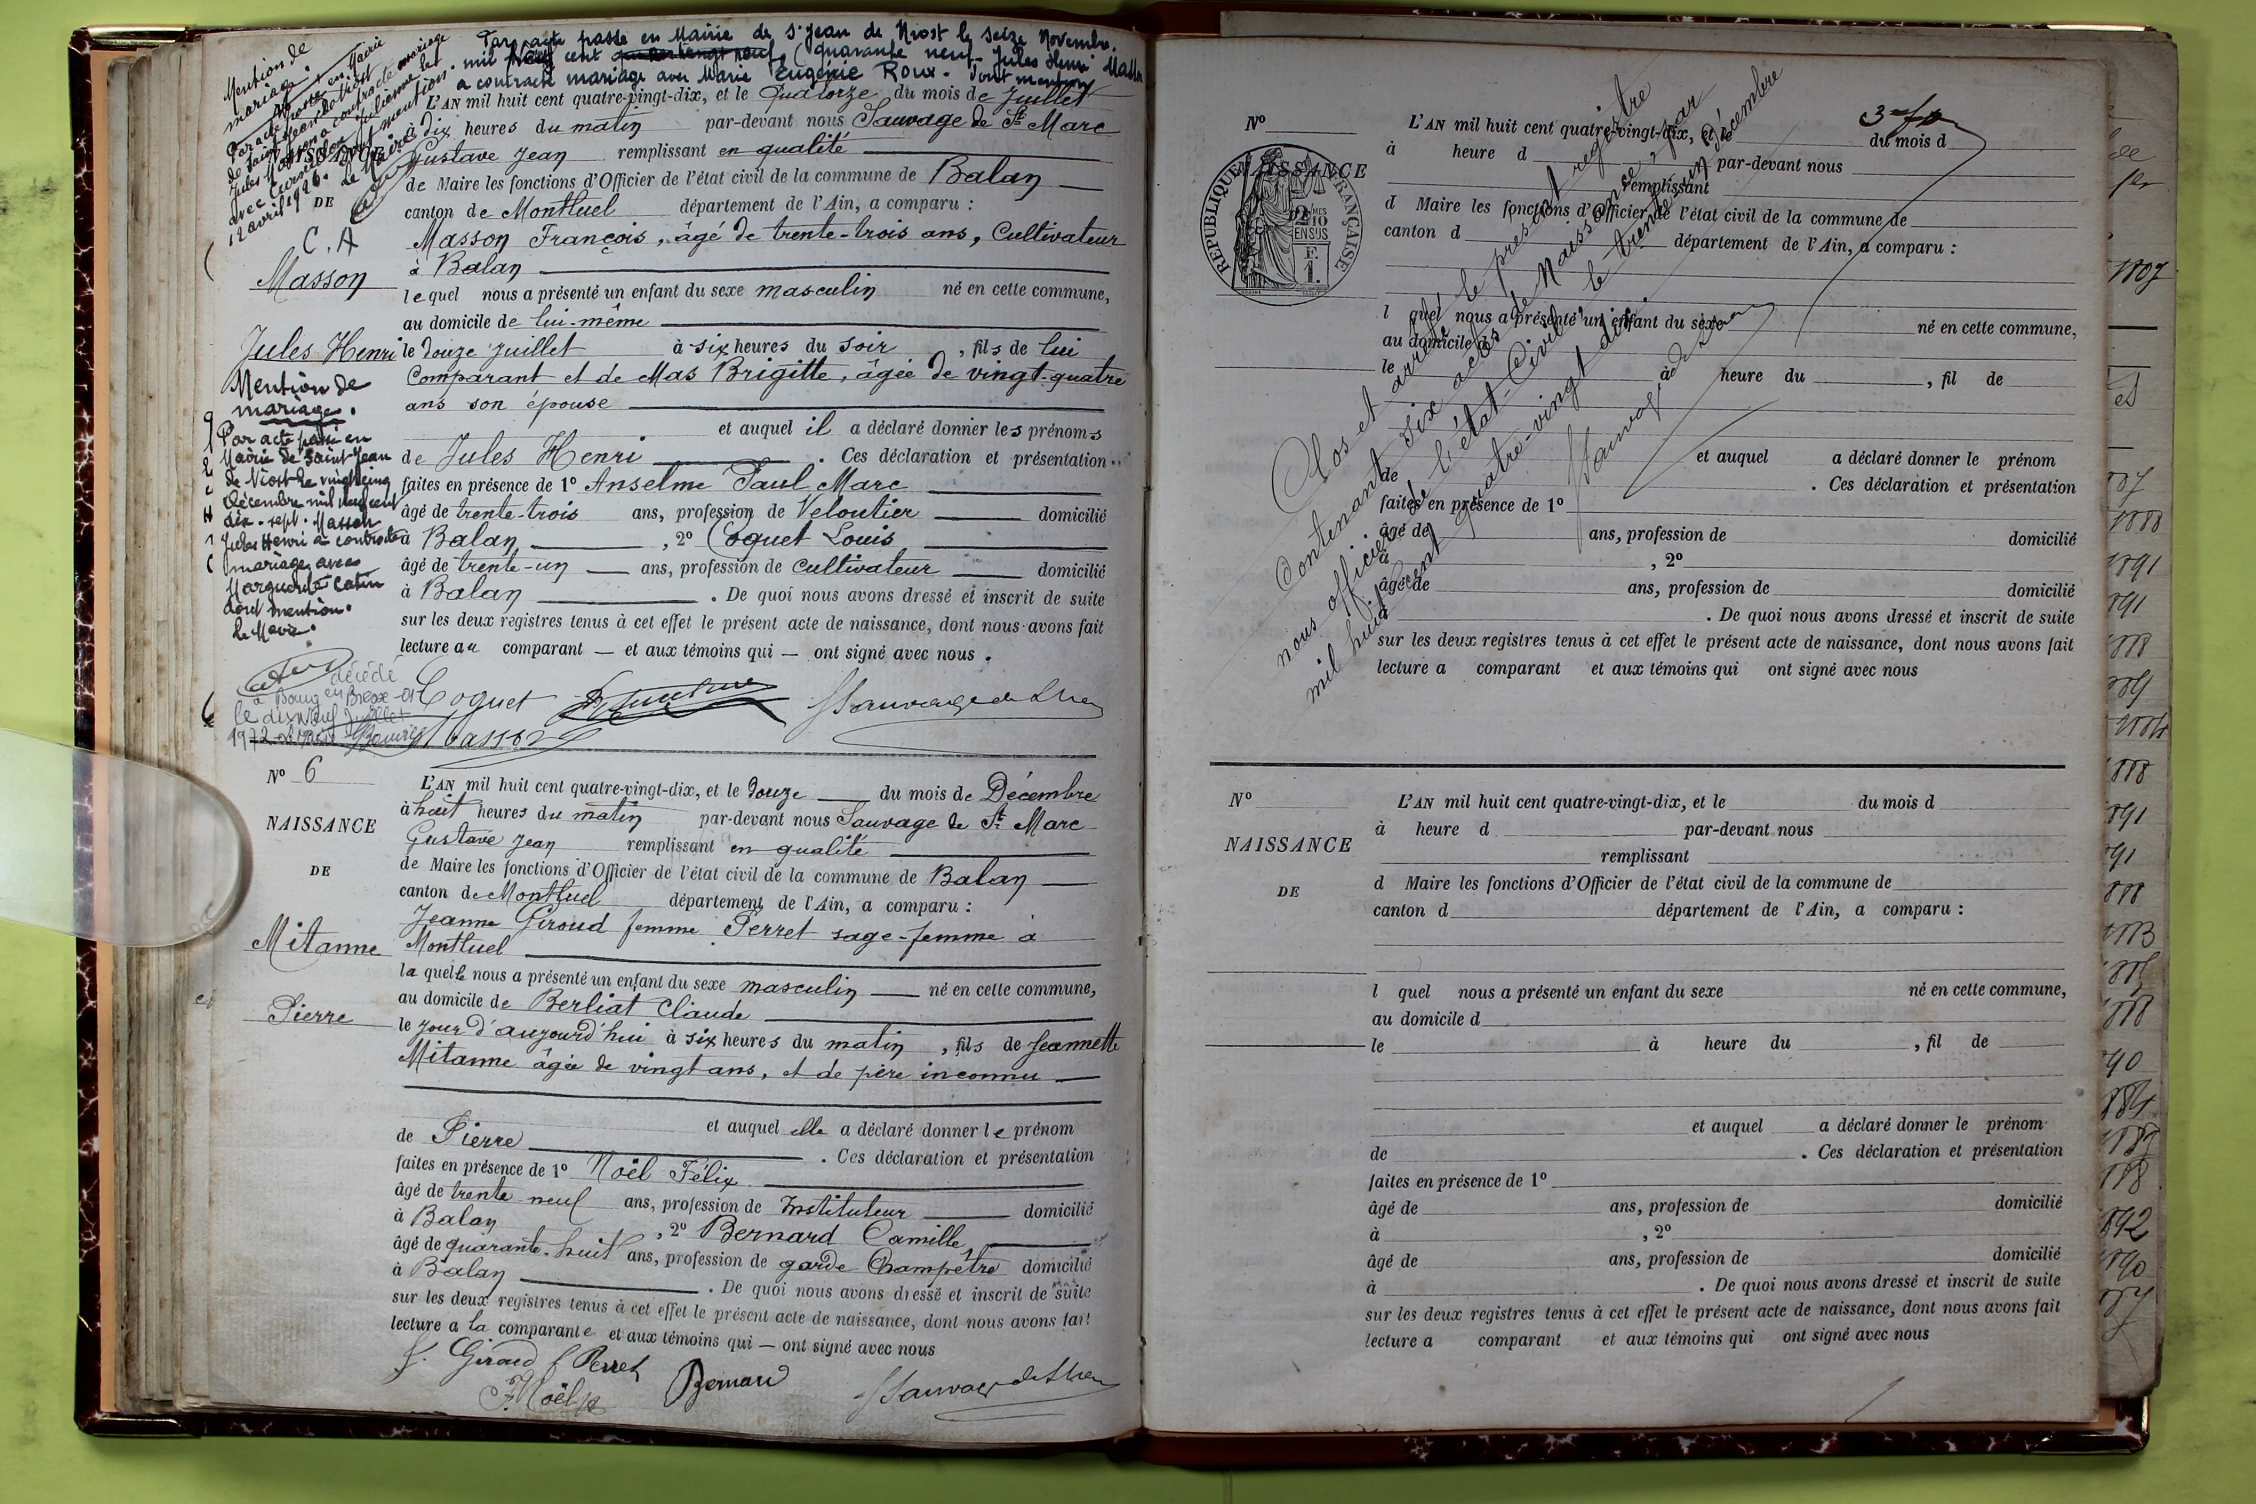 Par acte passé en Mairie de St Jean de Niost le seize Novembre
mil neuf cent quarante neuf Jules Henri Masson
a contracté mariage avec Marie Eugénie Roux. Dont mention
Mention de
mariage.
Par acte passé en Mairie
de Saint Jean de Niost
Jules Masson a contracté mariage
avec
12 avril 1926. Le Maire
NAISSANCE
DE
C. A
Masson
Jules Henri
Mention de
mariage.
Par acte passé en
Mairie de Saint Jean
de Niost le vingt cinq
Décembre mil neuf cent
dix-sept. Masson
Jules Henri a contracté
mariage avec
Marguerite Catin
dont mention.
Le Maire.
décédé
à Bourg en Bresse -01
le dix neuf Juillet
1972
L'AN mil huit cent quatre-vingt-dix, et le Quatorze du mois de Juillet
à dix heures du matin par-devant nous Sauvage de St Marc
Gustave Jean remplissant en qualité
de Maire les fonctions d'Officier de l'état civil de la commune de Balan
canton de Montluel département de l'Ain, a comparu :
Masson François, âgé de trente-trois ans, Cultivateur
à Balan
lequel nous a présenté un enfant du sexe masculin né en cette commune,
au domicile de lui-même
le douze Juillet à six heures du soir, fils de lui
Comparant et de Mas Brigitte, âgée de vingt-quatre
ans son épouse
et auquel il a déclaré donner les prénoms
de Jules Henri. Ces déclaration et présentation
faites en présence de 1º Anselme Paul Marc
âgé de trente-trois ans, profession de Veloutier domicilié
à Balan, 2º Coquet Louis
âgé de trente-un ans, profession de cultivateur domicilié
à Balan. De quoi nous avons dressé et inscrit de suite
sur les deux registres tenus à cet effet le présent acte de naissance, dont nous avons fait
lecture au comparant — et aux témoins qui — ont signé avec nous.
Coquet
Masson
Nº 6
NAISSANCE
DE
Mitanne
Pierre
L'AN mil huit cent quatre-vingt-dix, et le douze du mois de Décembre
à huit heures du matin par-devant nous Sauvage de St Marc
Gustave Jean remplissant en qualité
de Maire les fonctions d'Officier de l'état civil de la commune de Balan
canton de Montluel département de l'Ain, a comparu :
Jeanne Giroud femme Perret sage-femme à
Montluel
laquelle nous a présenté un enfant du sexe masculin né en cette commune,
au domicile de Berliat Claude
le jour d'aujourd'hui à six heures du matin, fils de Jeannette
Mitanne âgée de vingt ans, et de père inconnu
et auquel elle a déclaré donner le prénom
de Pierre. Ces déclaration et présentation
faites en présence de 1º Noël Félix
âgé de trente neuf ans, profession de Instituteur domicilié
à Balan, 2º Bernard Camille
âgé de quarante-huit ans, profession de garde Champêtre domicilié
à Balan. De quoi nous avons dressé et inscrit de suite
sur les deux registres tenus à cet effet le présent acte de naissance, dont nous avons fait
lecture a la comparante et aux témoins qui — ont signé avec nous
J. Giroud f Perret
F. Noël
Bernard
Nº
NAISSANCE
RÉPUBLIQUE FRANÇAISE
2 10MES
EN SUS
F.
1.
L'AN mil huit cent quatre-vingt-dix, et le du mois d
à heure d par-devant nous
remplissant
d Maire les fonctions d'Officier de l'état civil de la commune de
canton d département de l'Ain, a comparu :
l quel nous a présenté un enfant du sexe né en cette commune,
au domicile d
le à heure du , fil de
et auquel a déclaré donner le prénom
de . Ces déclaration et présentation
faites en présence de 1º
âgé de ans, profession de domicilié
à , 2º
âgé de ans, profession de domicilié
à . De quoi nous avons dressé et inscrit de suite
sur les deux registres tenus à cet effet le présent acte de naissance, dont nous avons fait
lecture a comparant et aux témoins qui ont signé avec nous
Clos et arrêté le présent registre
contenant six actes de Naissance, par
nous officier de l'état-Civil, le trente un Décembre
mil huit cent quatre-vingt dix.
Nº
NAISSANCE
DE
L'AN mil huit cent quatre-vingt-dix, et le du mois d
à heure d par-devant nous
remplissant
d Maire les fonctions d'Officier de l'état civil de la commune de
canton d département de l'Ain, a comparu :
l quel nous a présenté un enfant du sexe né en cette commune,
au domicile d
le à heure du , fil de
et auquel a déclaré donner le prénom
de . Ces déclaration et présentation
faites en présence de 1º
âgé de ans, profession de domicilié
à , 2º
âgé de ans, profession de domicilié
à . De quoi nous avons dressé et inscrit de suite
sur les deux registres tenus à cet effet le présent acte de naissance, dont nous avons fait
lecture a comparant et aux témoins qui ont signé avec nous